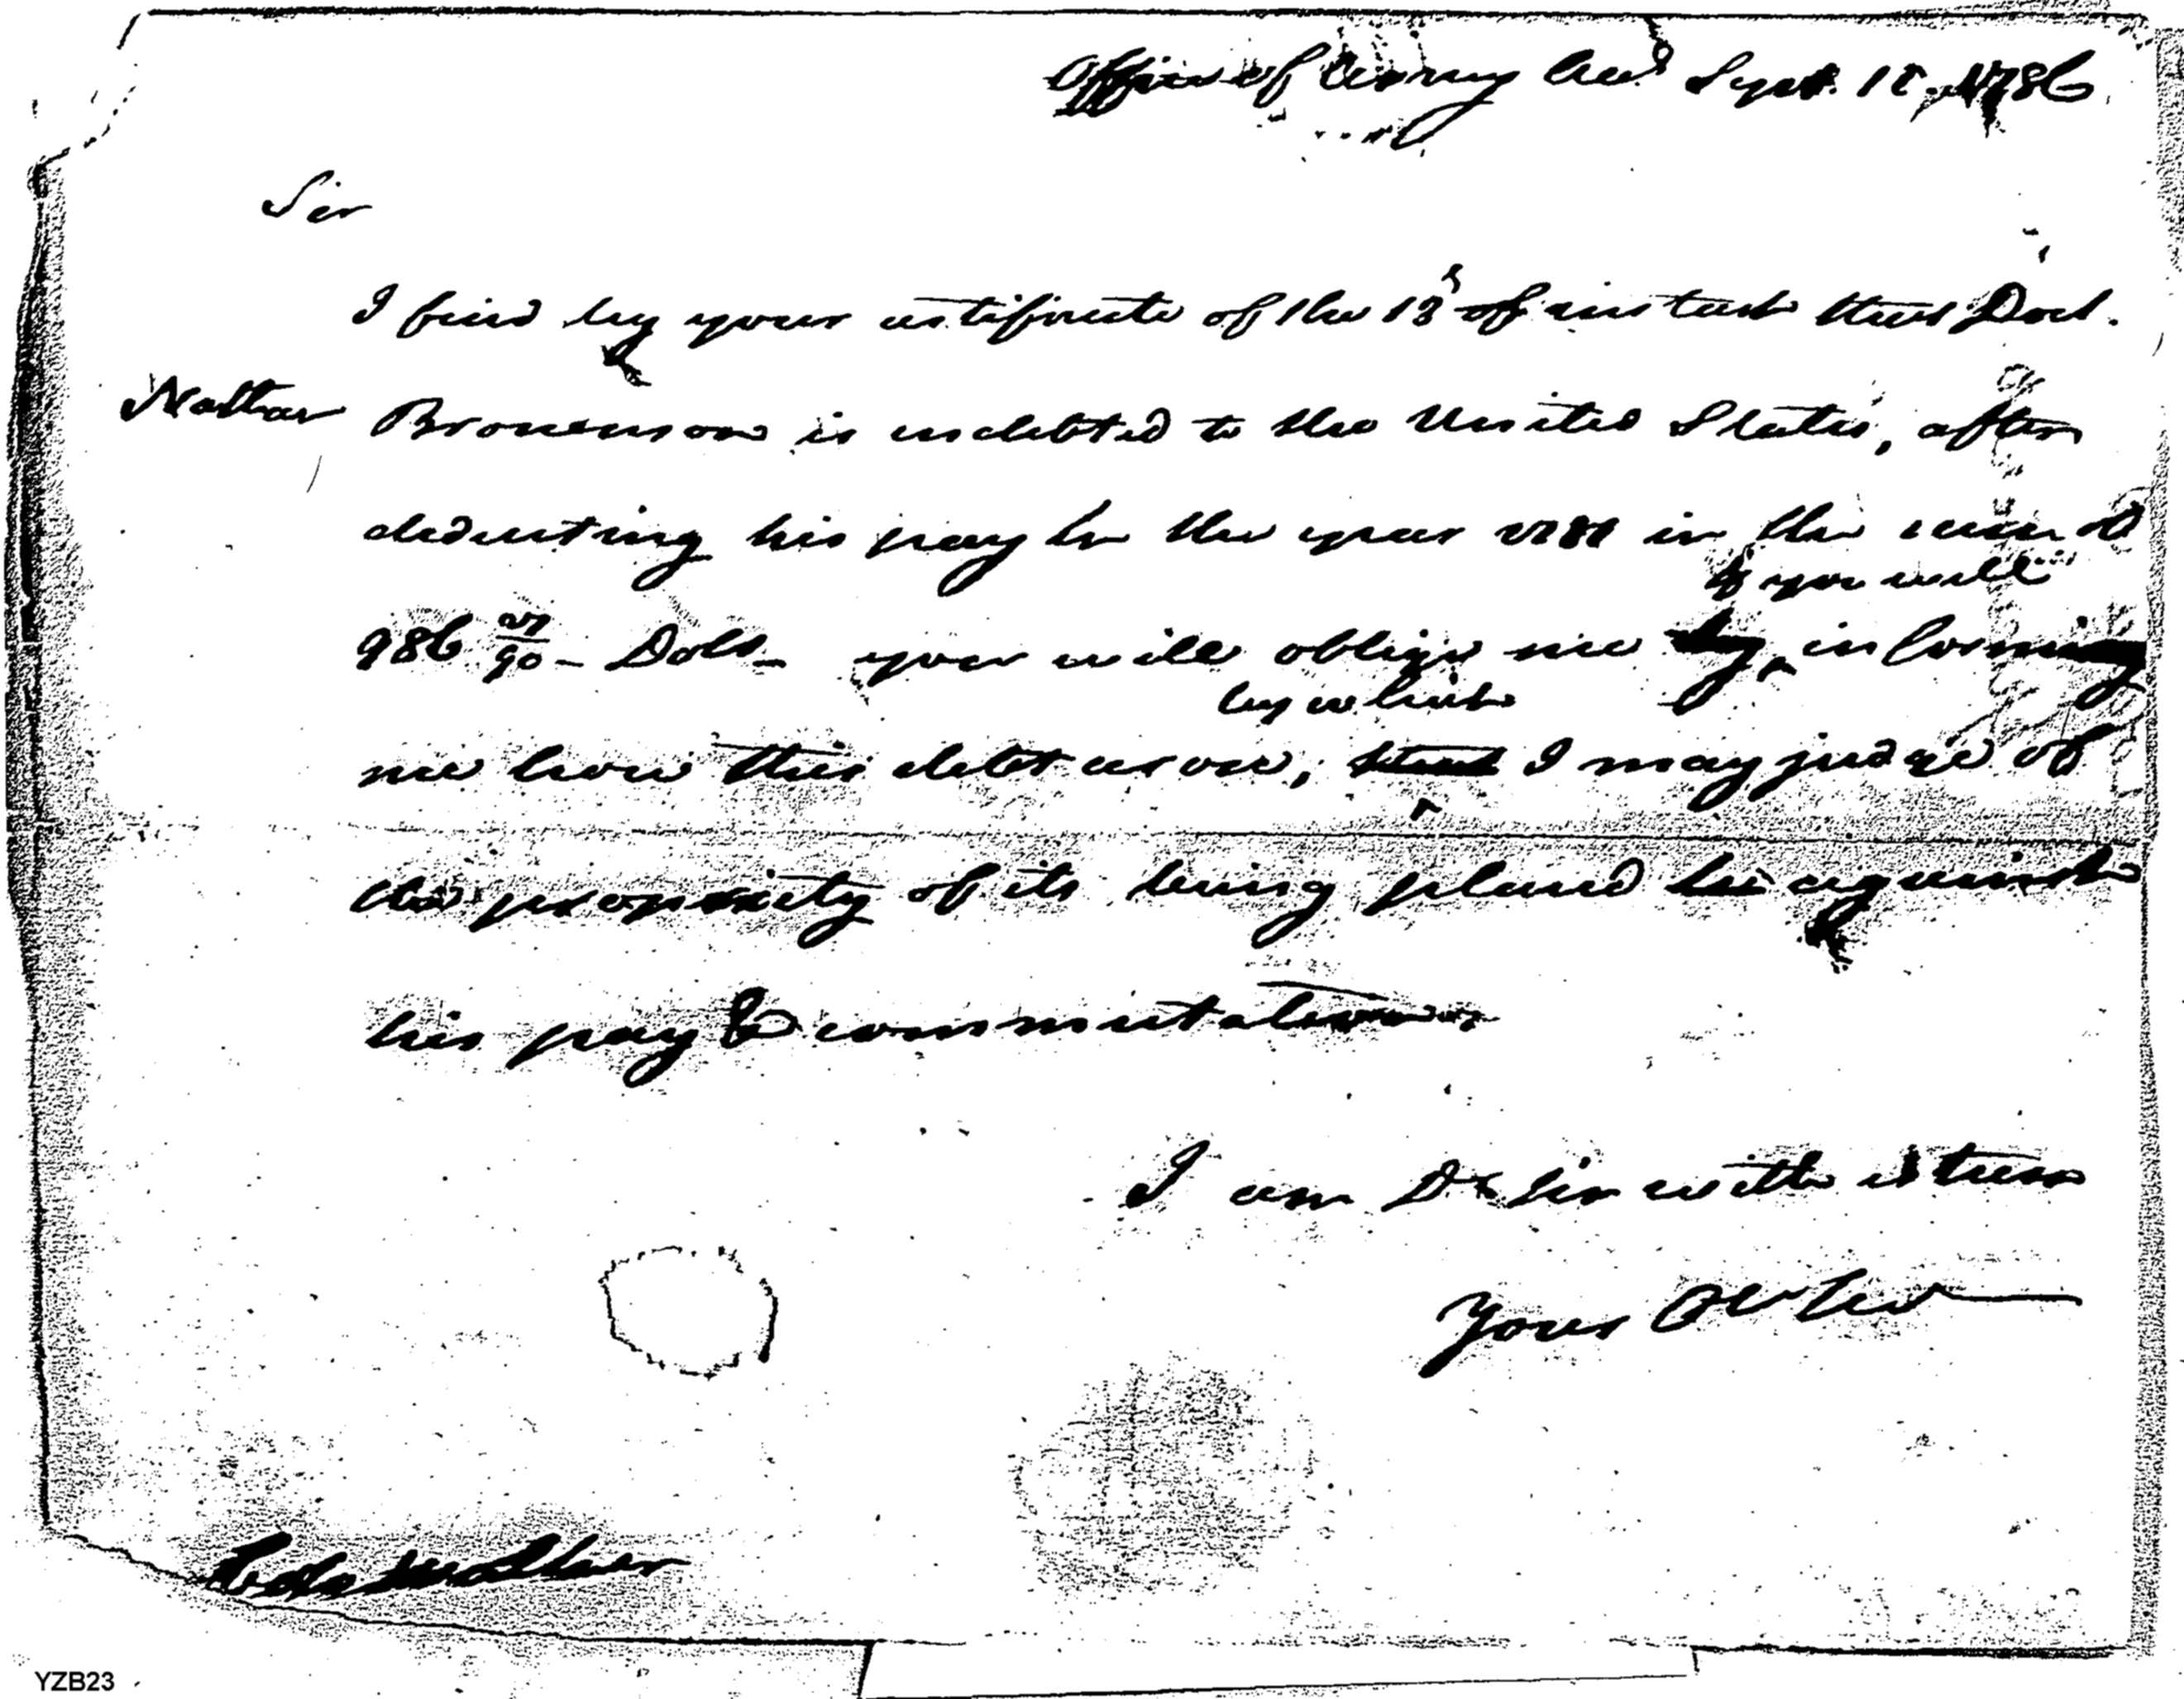 Office of Army Acc.ts Sept. 15, 1786
Sir
I find by your certificate of the 13 of instant that Doct.
Nathan Brownson is indebted to the United States, after
deducting his pay for the year 1781 in the sum of
if you will
986 27/90 - Dolls - you will oblige me by informing
by which
me how this debt arose, I may judge of
the propriety of its being placed against
his pay & commutation
I am Dr Sir with esteem
Your Obt Ser
YZB23